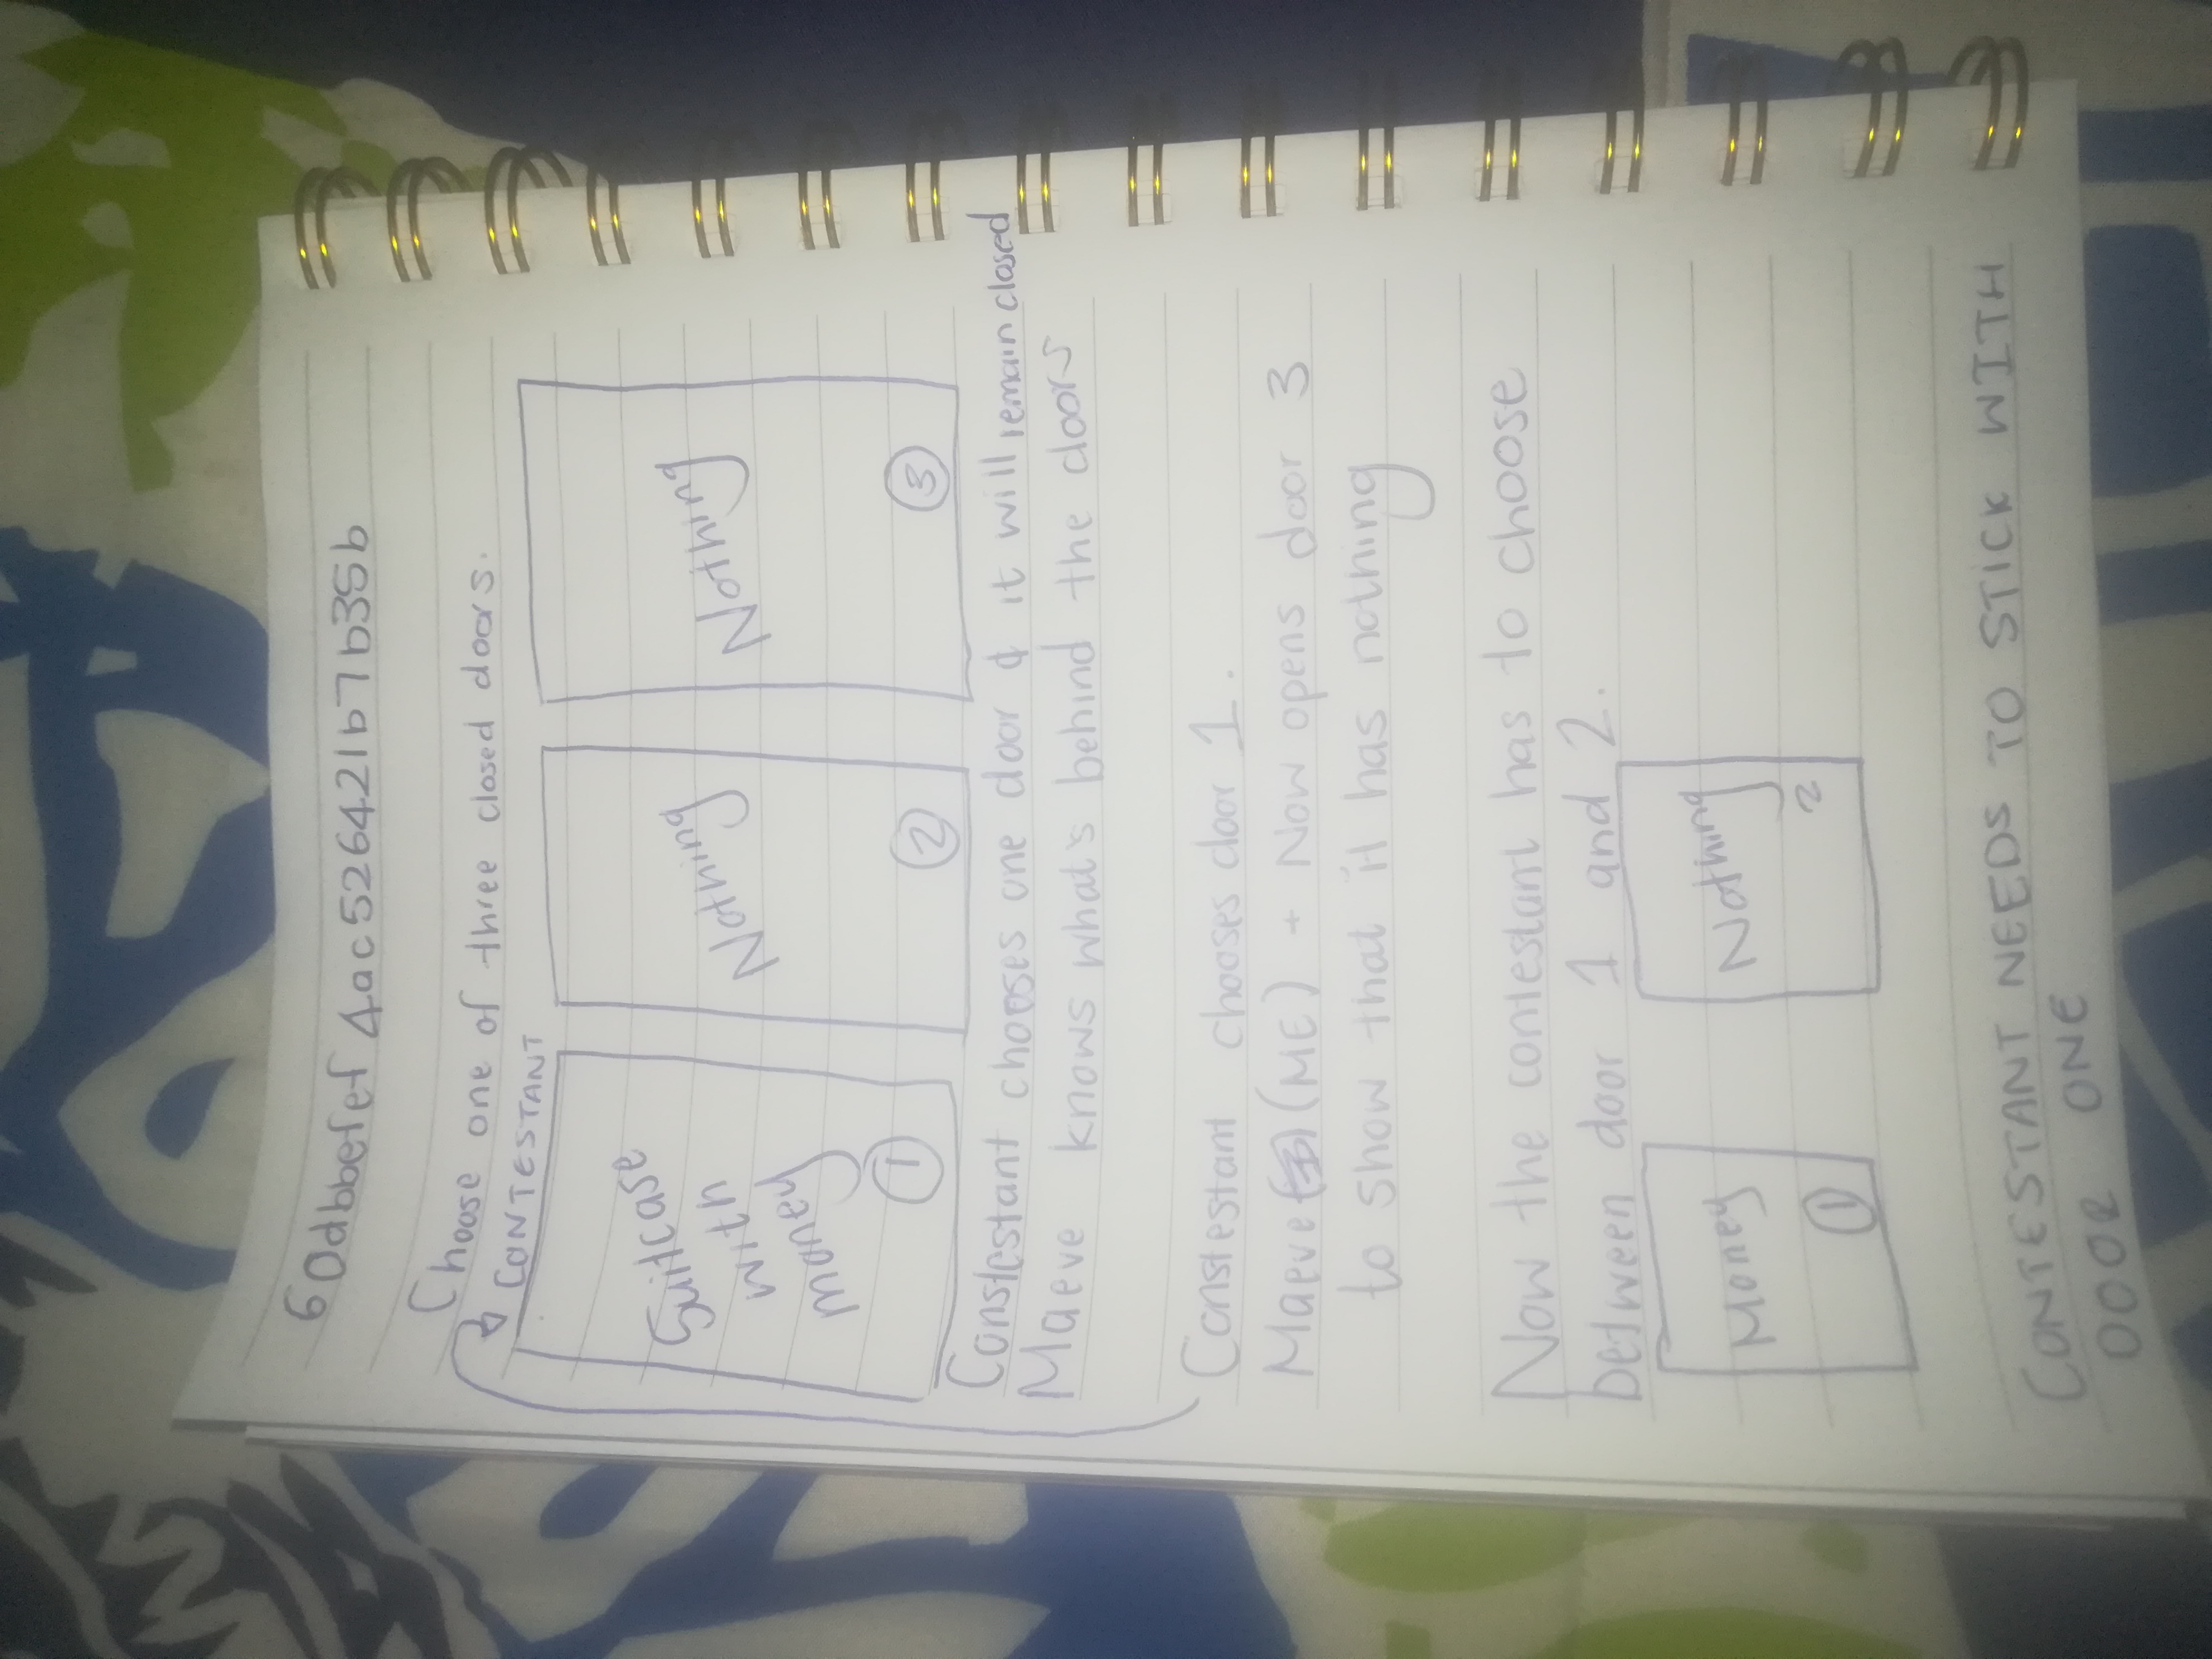 60dbbefef4ac526421b7b35b
Choose one of three closed doors.
CONTESTANT
Suitcase
with
money
1
Nothing
2
Nothing
3
Constestant chooses one door & it will remain closed
Maeve knows what's behind the doors
Constestant chooses door 1.
Maeve (ME) + Now opens door 3
to show that it has nothing
Now the contestant has to choose
between door 1 and 2.
Money
1
Nothing
2
CONTESTANT NEEDS TO STICK WITH
DOOR ONE